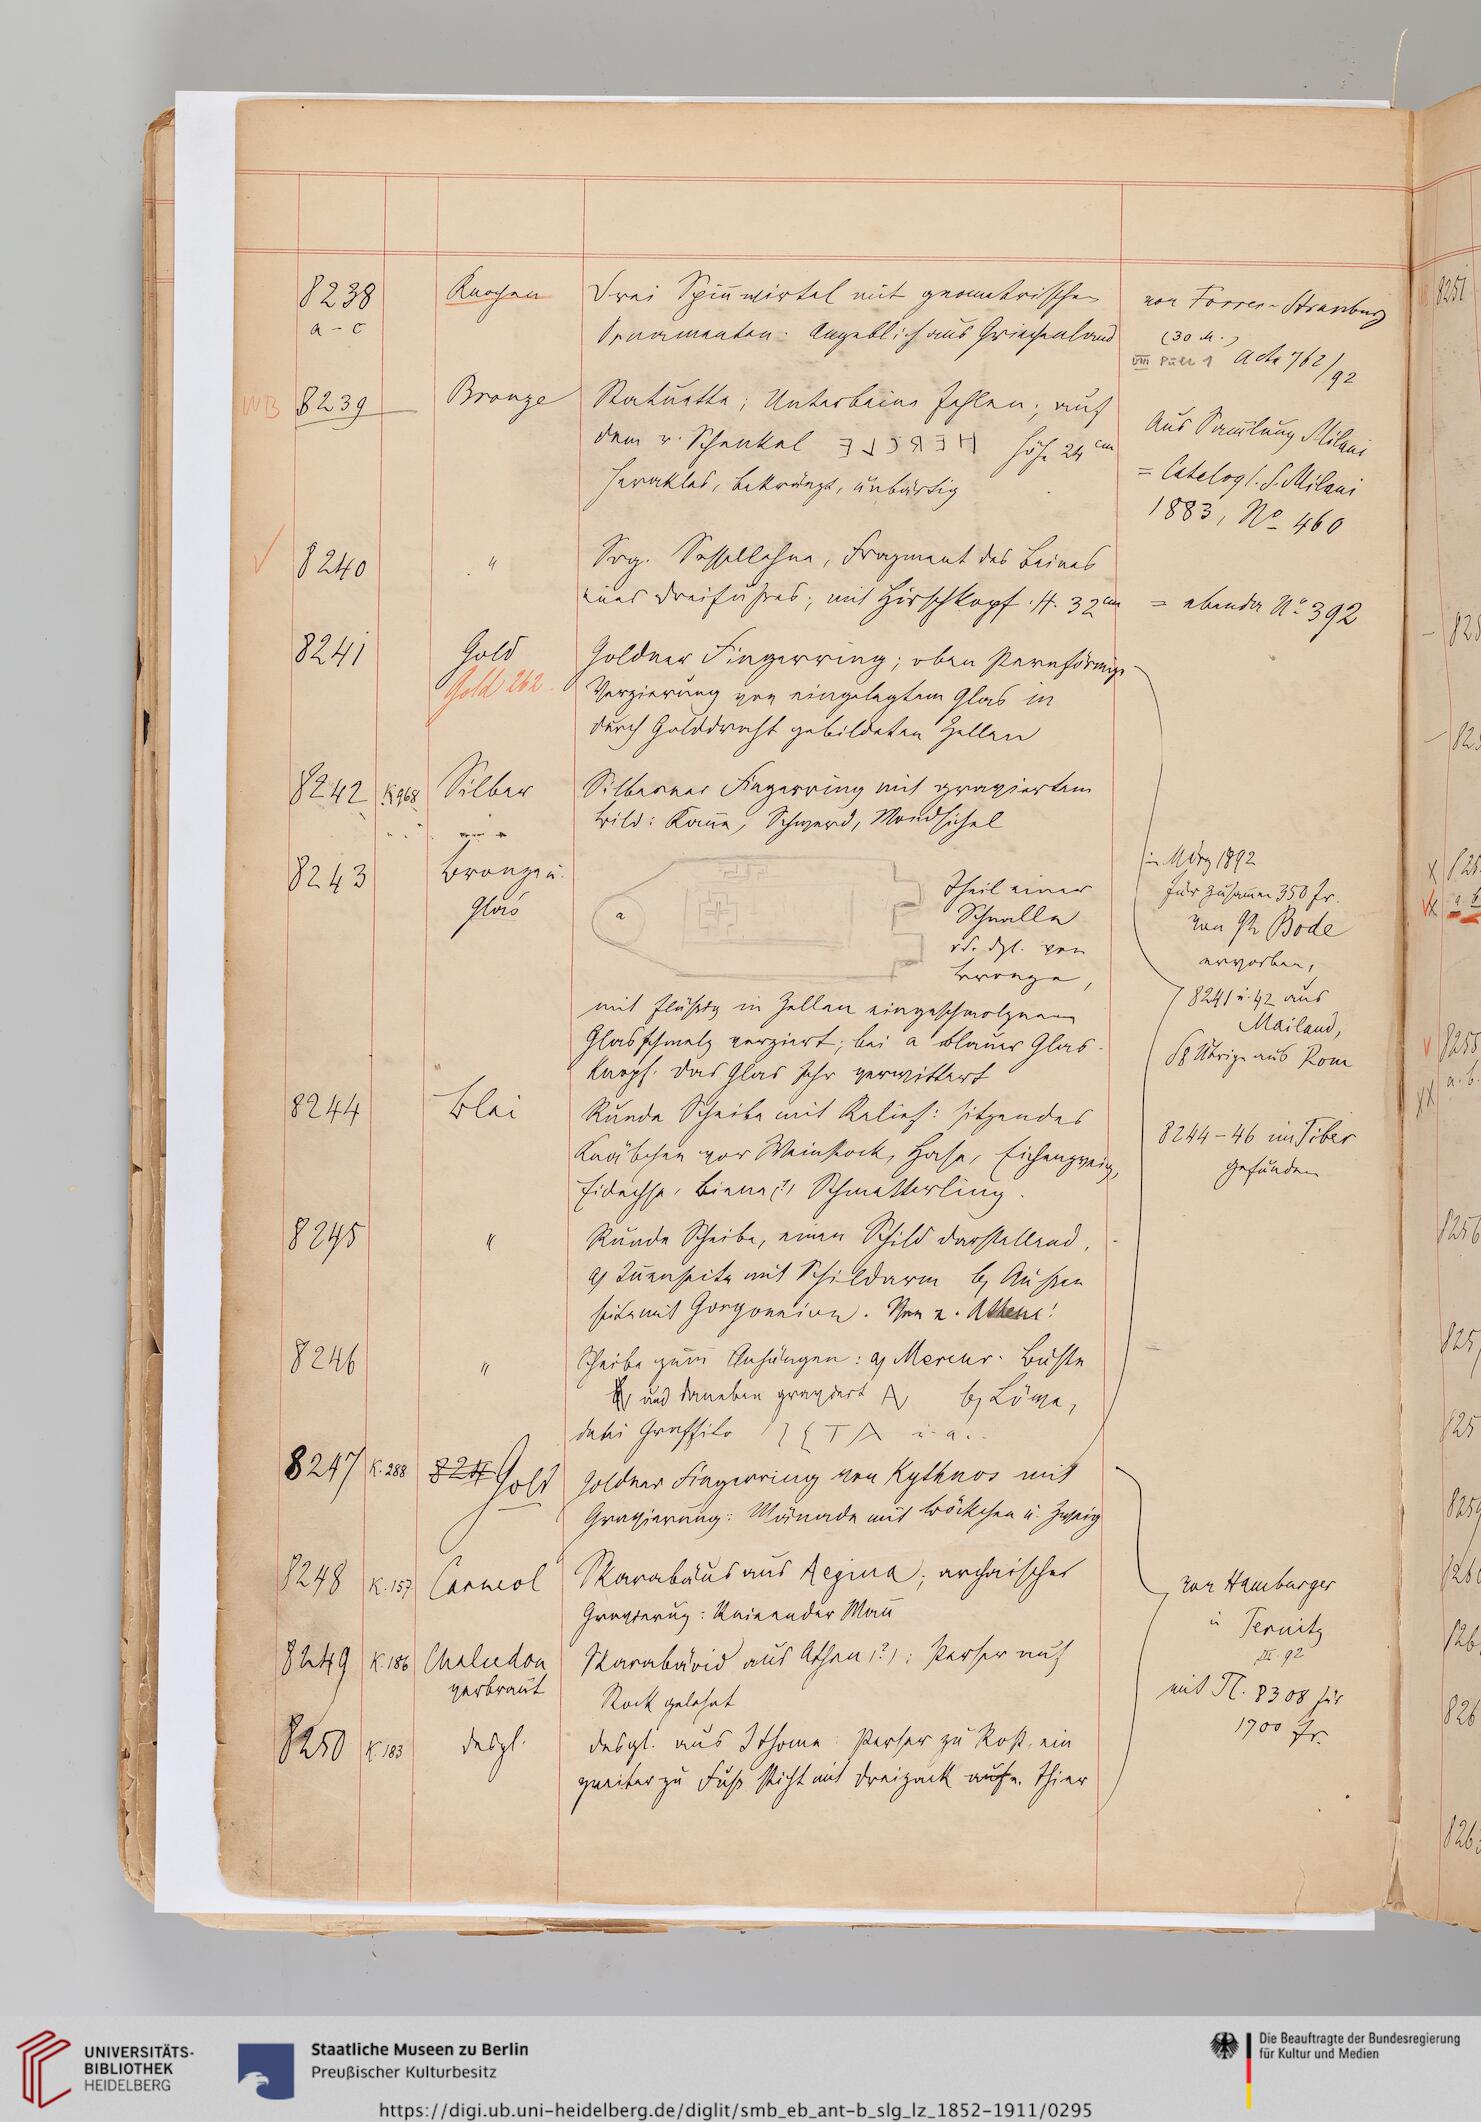 8238
a-c
Knochen
Drei Spinnwirtel mit geometrischen
Ornamenten. Angeblich aus Griechenland
von Forrer-Strassburg
(30 M.)
Acta 762/92
WB
8239
Bronze
Statuette; Unterbeine fehlen; auf
dem r. Schenkel HERCLE Höhe 24 cm
Herakles, bekränzt, unbärtig
Aus Samlung Milani
= Catalog S. Milani
1883, No 460
8240
"
Sog. Sessellehne, Fragment des Beines
eines Dreifußes; mit Hirschkopf. H. 32 cm
= ebenda No 392
8241
Gold
Gold 262.
Goldner Fingerring; oben sternförmige
Verzierung von eingelegtem Glas in
durch Golddraht gebildeten Zellen
8242
K 968
Silber
Silberner Fingerring mit graviertem
Bild: Kanne, Schwerd, Mondsichel
8243
Bronze u.
Glas
a
Theil einer
Schnalle
od. dgl. von
Bronze,
mit flüssig in Zellen eingeschmolznem
Glasschmelz verziert; bei a blauer Glas-
knopf. Das Glas sehr verwittert
in März 1892
für zusammen 350 fr.
von Bode
erworben,
8241 u. 42 aus
Mailand,
das Übrige aus Rom
8244
Blei
Runde Scheibe mit Relief: sitzendes
Knäbchen vor Weinstock, Hase, Eichenzweig,
Eidechse, Biene (?), Schmetterling.
8244-46 im Tiber
gefunden
8245
"
Runde Scheibe, einen Schild darstellend,
a) Innenseite mit Schildarm b) Außen
seite mit Gorgoneion.
8246
"
Scheibe zum Anhängen: a) Mercur-Büste
und daneben graviert b) Löwe,
dabei Graffito u. a.
8247
K. 288
Gold
Goldner Fingerring von Kythnos mit
Gravierung: Mänade mit Böckchen u. Zweig
8248
K. 157
Carneol
Skarabäus aus Aegina; archaischer
Gravierung: Knieender Mann
8249
K. 186
Chalcedon
verbrant
Skarabäoid aus Athen (?); Perser auf
Stock gelehnt
8250
K. 183
desgl.
desgl. aus Ithome: Perser zu Roß, ein
zweiter zu Fuß sticht mit Dreizack auf e. Thier
von Hamburger
in Ternitz
III. 92
mit TC. 8308 für
1700 fr.
UNIVERSITÄTS-
BIBLIOTHEK
HEIDELBERG
Staatliche Museen zu Berlin
Preußischer Kulturbesitz
Die Beauftragte der Bundesregierung
für Kultur und Medien
https://digi.ub.uni-heidelberg.de/diglit/smb_eb_ant-b_slg_lz_1852-1911/0295